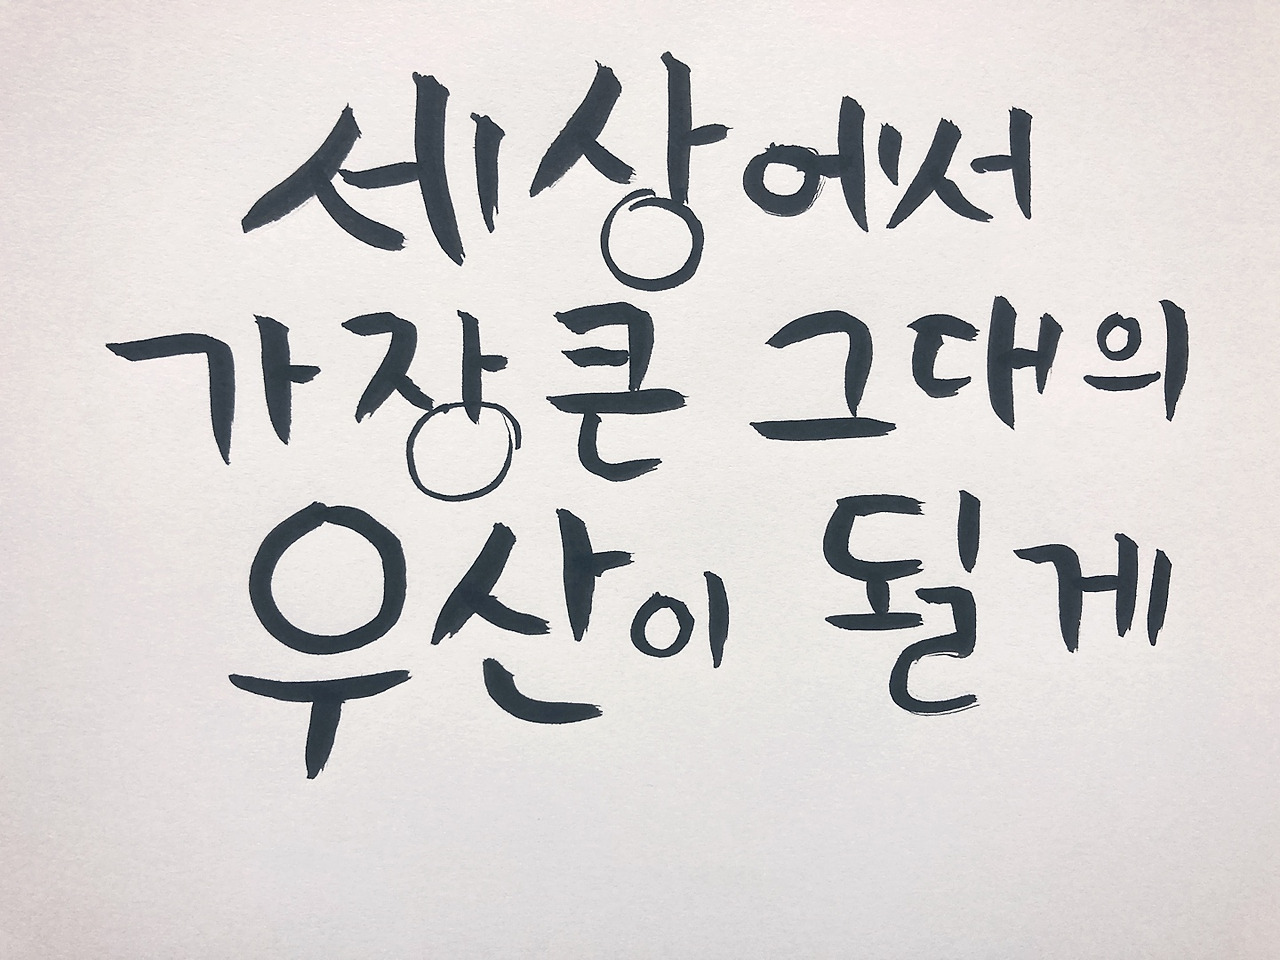 세상에서
가장 큰 그대의
우산이 될게